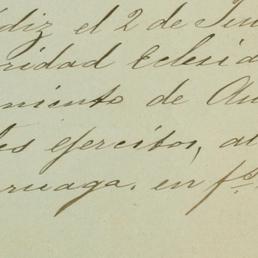 diz el 2 de Jun
ridad Eclesia
miento de Au
es ejercitos, al
rruaga, en f.s